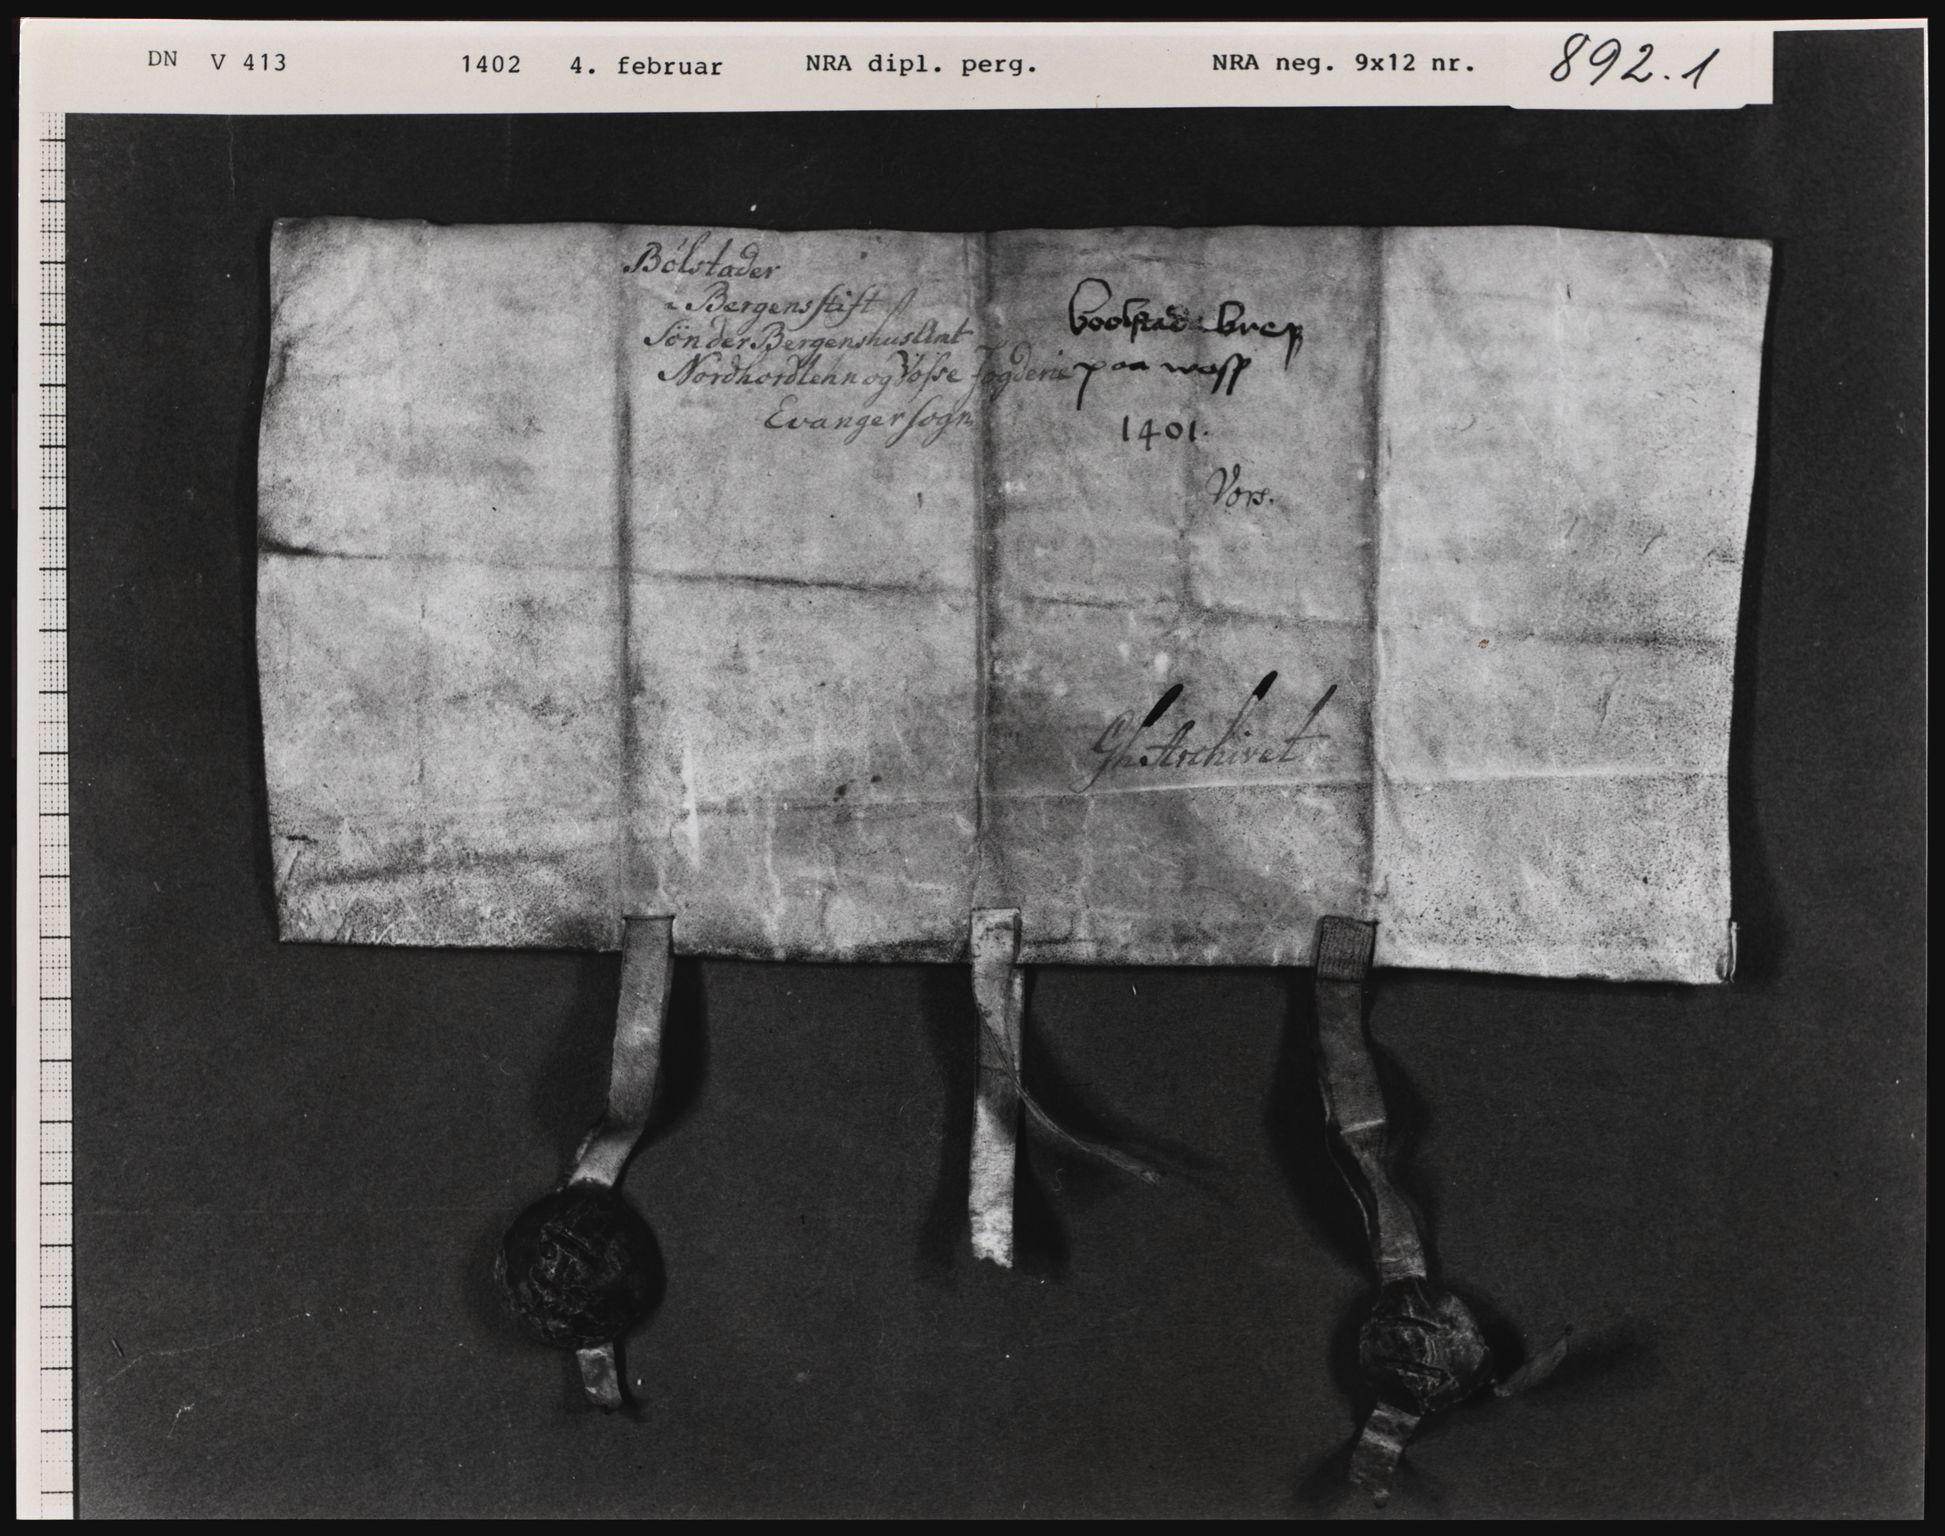 DN V 413 1402 4. februar NRA dipl. perg. NRA neg. 9x12 nr. 892.1
Bólstader
i Bergensstift
Sönder Bergenshus Amt
Nordhordlehn og Vosse Fogderie
Evanger sogn
boolstad breff
paa woss
1401.
Vors.
Gh. Archivet